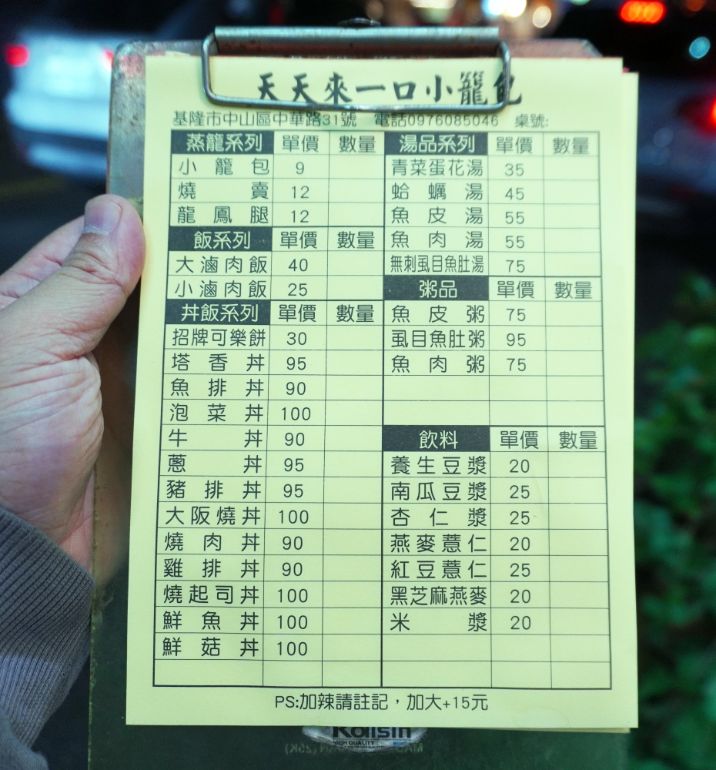 天天來一口小籠包
基隆市中山區中華路31號 電話0976085046 桌號:
蒸籠系列 單價 數量
小籠包 9
燒賣 12
龍鳳腿 12
飯系列 單價 數量
大滷肉飯 40
小滷肉飯 25
丼飯系列 單價 數量
招牌可樂餅 30
塔香丼 95
魚排丼 90
泡菜丼 100
牛丼 90
蔥丼 95
豬排丼 95
大阪燒丼 100
燒肉丼 90
雞排丼 90
燒起司丼 100
鮮魚丼 100
鮮菇丼 100
湯品系列 單價 數量
青菜蛋花湯 35
蛤蠣湯 45
魚皮湯 55
魚肉湯 55
無刺虱目魚肚湯 75
粥品 單價 數量
魚皮粥 75
虱目魚肚粥 95
魚肉粥 75
飲料 單價 數量
養生豆漿 20
南瓜豆漿 25
杏仁漿 25
燕麥薏仁 20
紅豆薏仁 25
黑芝麻燕麥 20
米漿 20
PS:加辣請註記，加大+15元
Kaisin